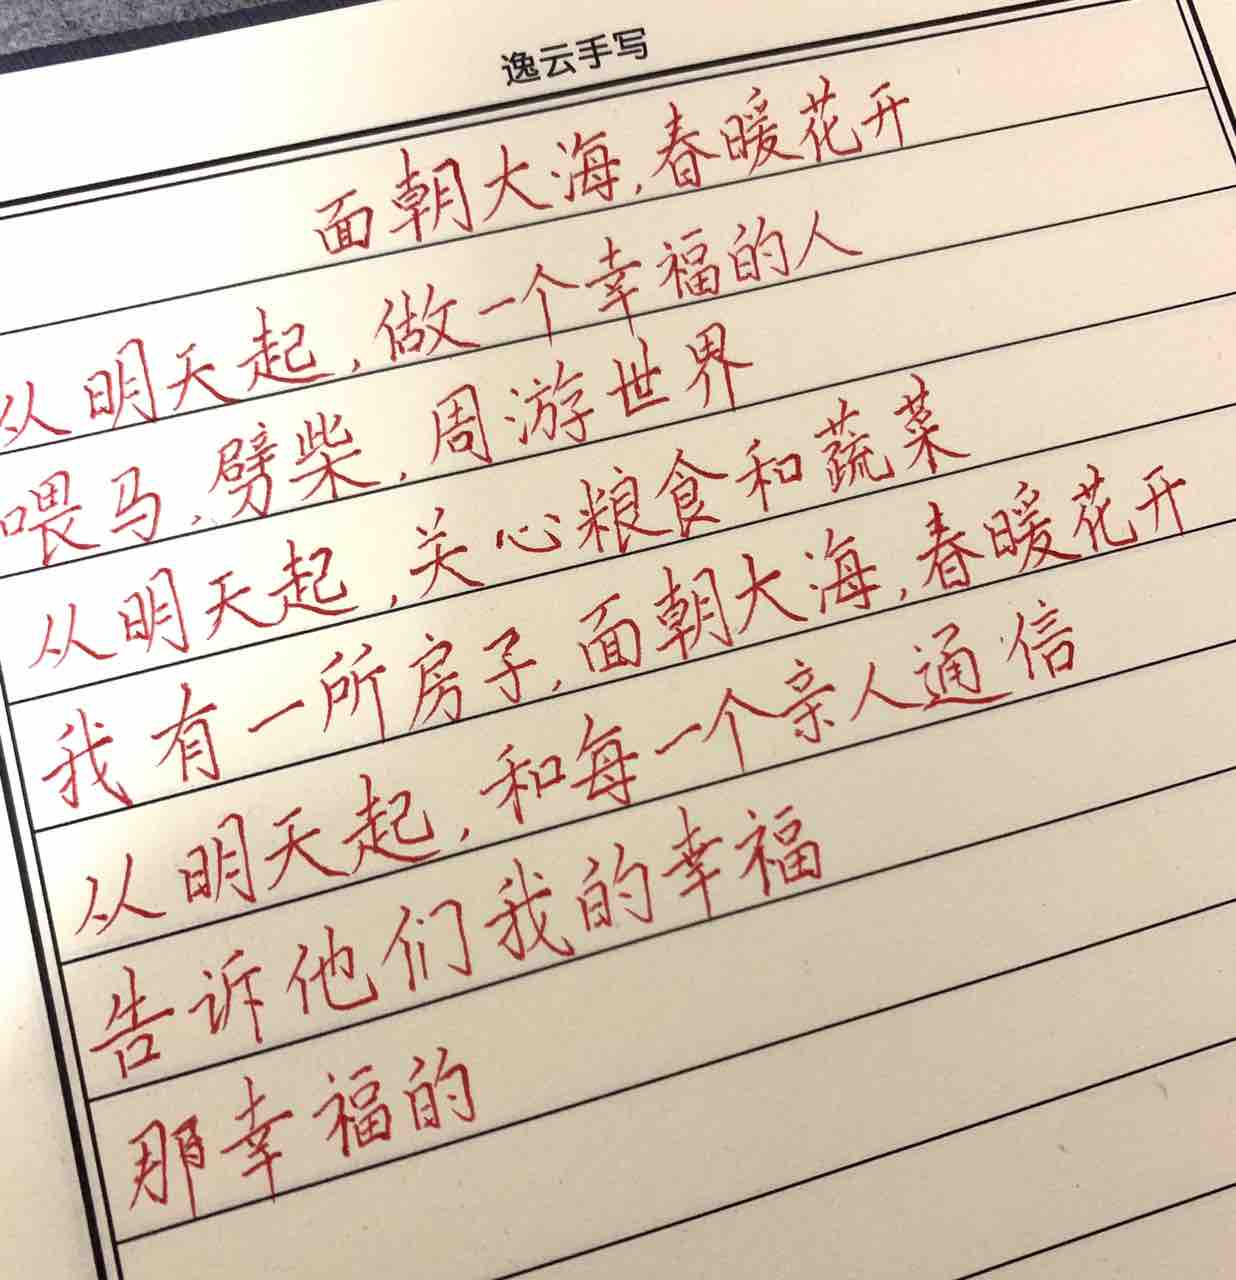 逸云手写
面朝大海,春暖花开
从明天起,做一个幸福的人
喂马,劈柴,周游世界
从明天起,关心粮食和蔬菜
我有一所房子,面朝大海,春暖花开
从明天起,和每一个亲人通信
告诉他们我的幸福
那幸福的